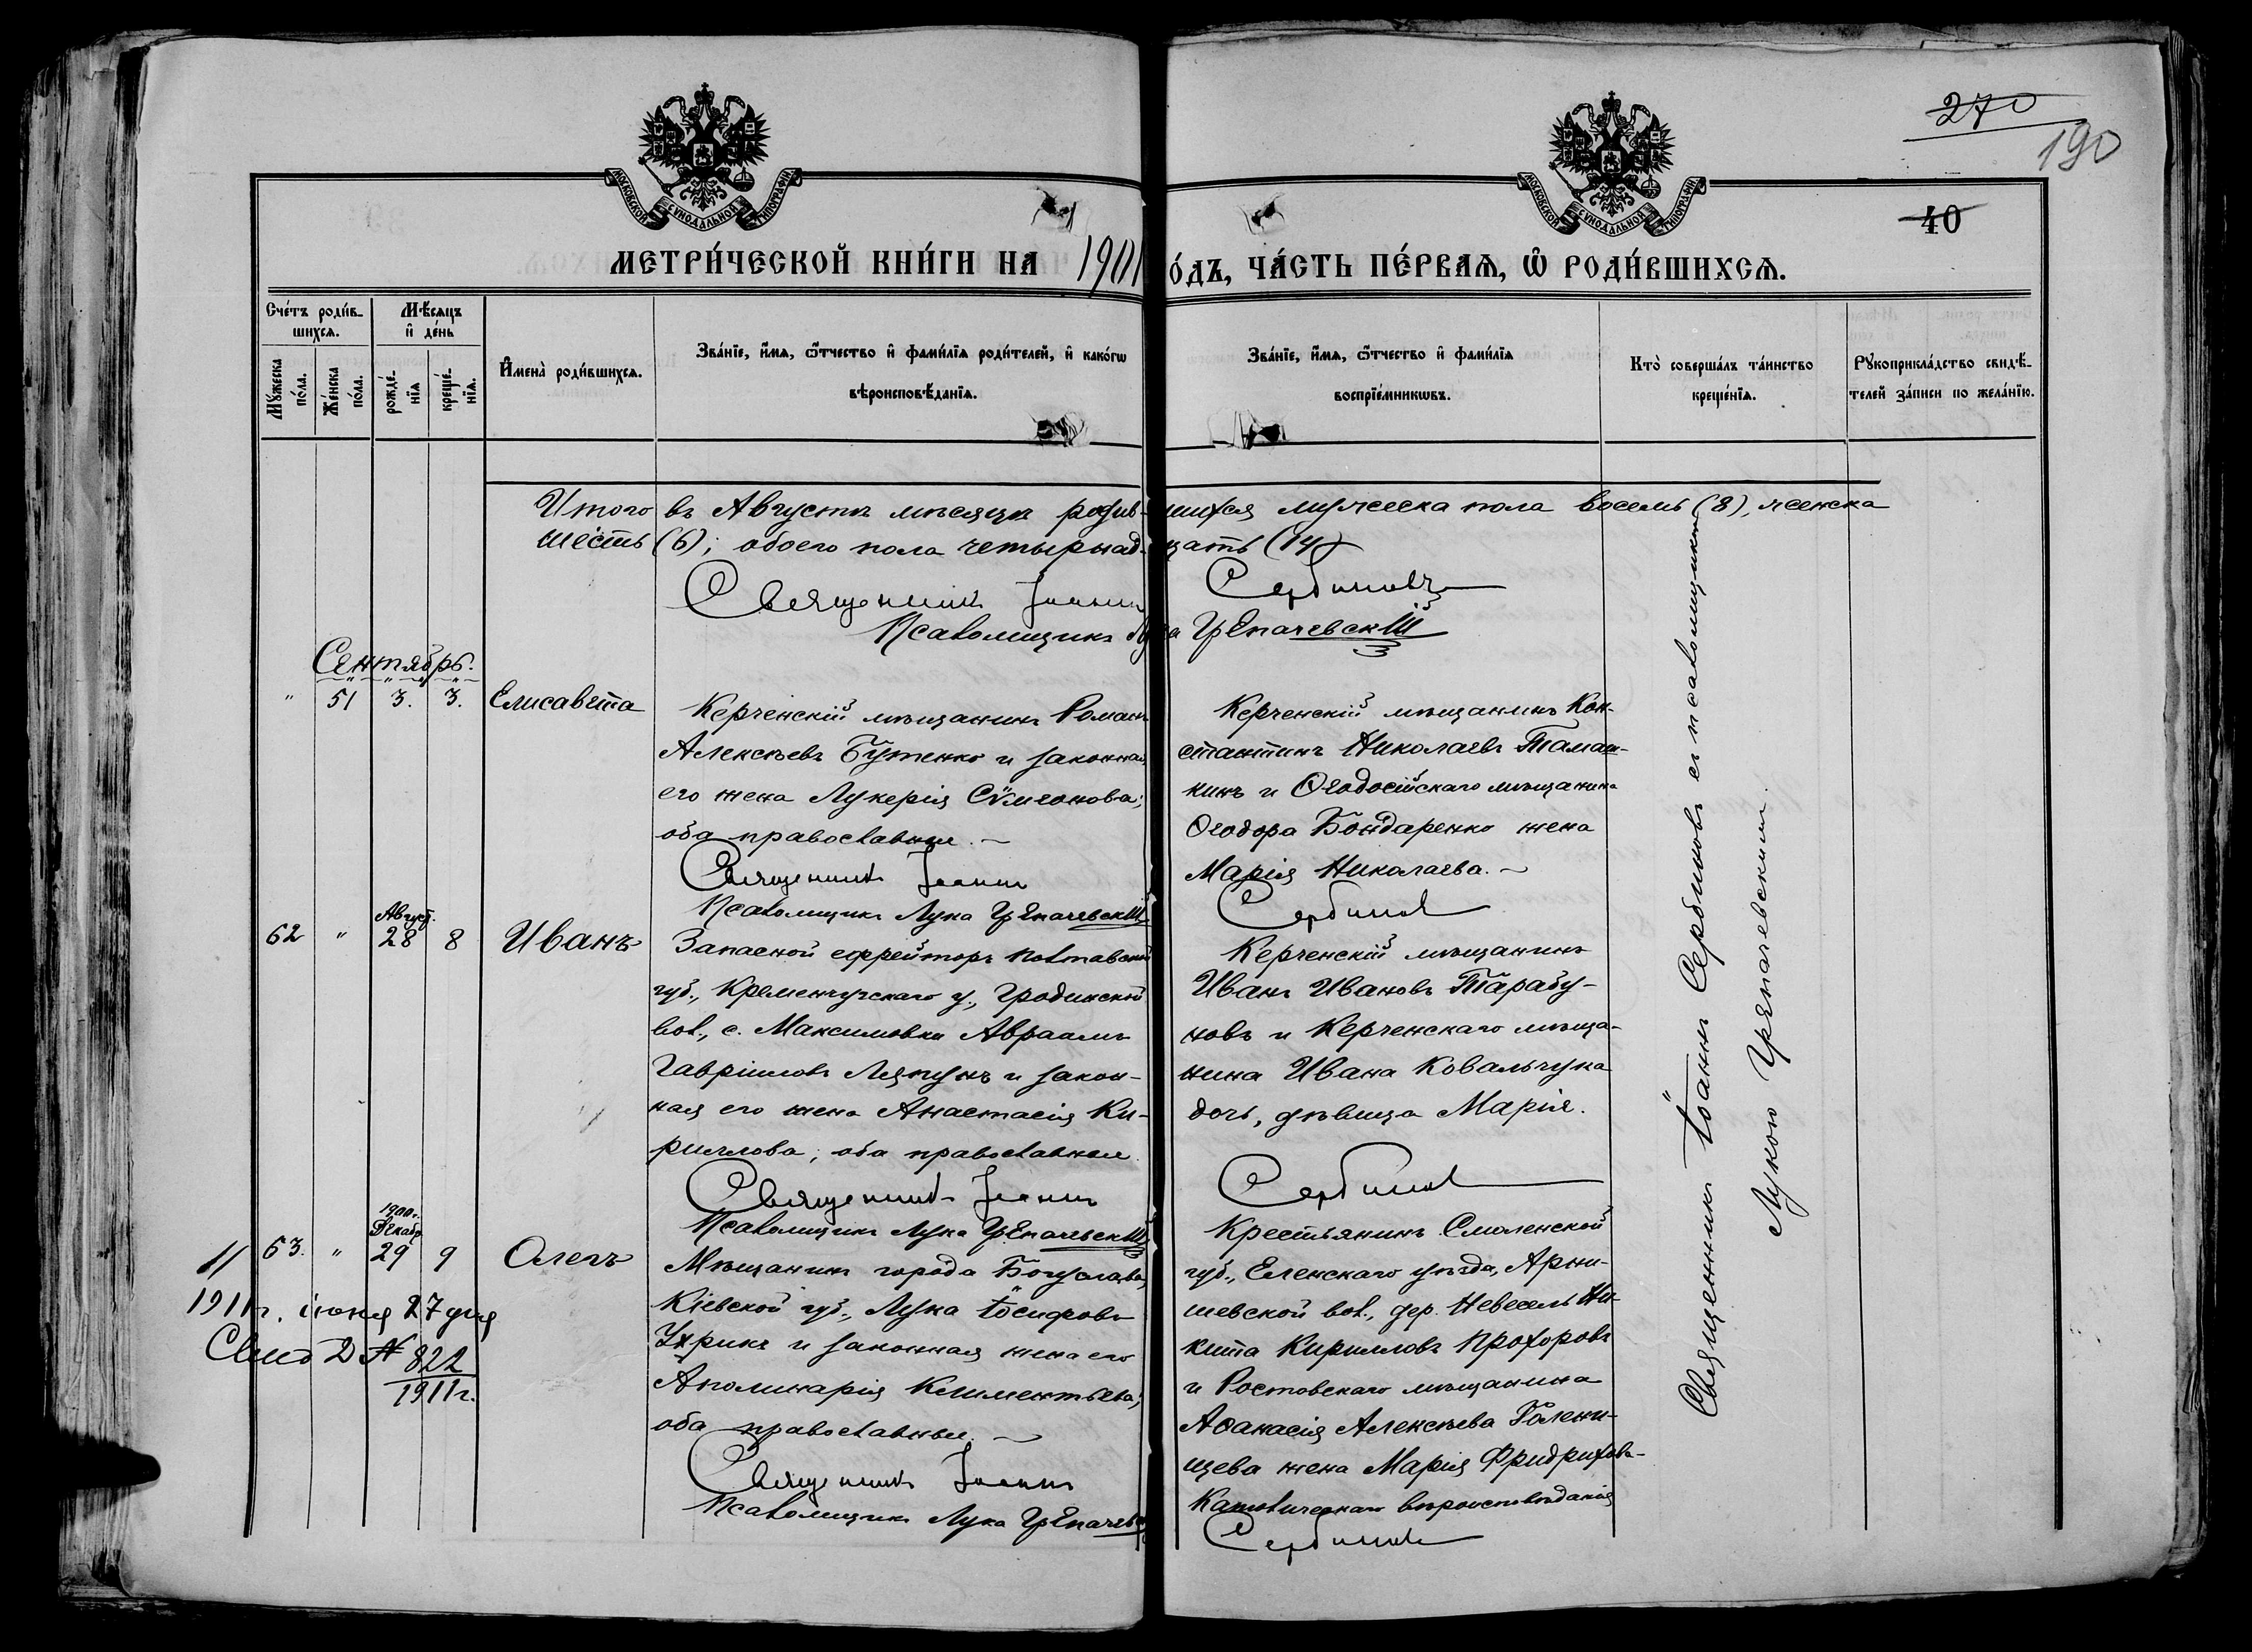 270
190
МОСКОВСКОЙ СѴНОДАЛЬНОЙ ТИПОГРАФІИ
МОСКОВСКОЙ СѴНОДАЛЬНОЙ ТИПОГРАФІИ
40
МЕТРИ́ЧЕСКОЙ КНИ́ГИ НА 1901
О́ДЪ, ЧА́СТЬ ПЕ́РВАѦ, Ѽ РОДИ́ВШИХСѦ.
Счéтъ роди́в-
шихсѧ.
Мꙋ́жеска
по́ла.
Же́нска
по́ла.
Мѣ́сѧцъ
и҆ де́нь
рожде́-
нїѧ
креще́-
нїѧ.
И҆мена̀ роди́вшихсѧ.
Зва́нїе, и҆́мѧ, ѻ҆́тчество и҆ фами́лїѧ роди́телей, и҆ како́гѡ
вѣроисповѣ́данїѧ.
Зва́нїе, и҆́мѧ, ѻ҆́тчество и҆ фами́лїѧ
воспрїе́мникѡвъ.
Кто̀ соверша́лъ та́инство
креще́нїѧ.
Рꙋкоприкла́дство свидѣ́-
телей за́писи по жела́нїю.
Итого въ Августѣ мѣсяцѣ родив-шихся мужеска пола восемь (8), женска
шесть (6); обоего пола четырнад-цать (14)
Священникъ Іоаннъ Сербиновъ
Псаломщикъ Лука Урепачевскій
Сентябрь.
" 51 3. 3. Елисавета
Керченскій мѣщанинъ Романъ
Алексѣевъ Бутенко и законная
его жена Лукерія Сѵмеонова;
оба православные.
Священникъ Іоаннъ
Псаломщикъ Лука Урепачевскій
Керченскій мѣщанинъ Кон-
стантинъ Николаевъ Тамаш-
кинъ и Ѳеодосійскаго мѣщанина
Ѳеодора Бондаренко жена
Марія Николаева.
Сербиновъ
Август.
62 " 28 8 Иванъ
Запасной ефрейторъ Полтавской
губ., Кременчугскаго у., Градижской
вол., с. Максимовки Авраамъ
Гавріиловъ Ляпунъ и закон-
ная его жена Анастасія Ки-
риллова; оба православные
Священникъ Іоаннъ
Псаломщикъ Лука Урепачевскій
Керченскій мѣщанинъ
Иванъ Ивановъ Тарабу-
новъ и Керченскаго мѣща-
нина Ивана Ковальчука
дочь, дѣвица Марія.
Сербиновъ
1900 г.
Декабр.
63. " 29 9 Олегъ
1911 г. іюня 27 дня
Свид № 822
1911 г.
Мѣщанинъ города Богуслава,
Кіевской губ., Лука Іосифовъ
и законная жена его
Аполинарія Климентьева;
оба православные.
Священникъ Іоаннъ
Псаломщикъ Лука Урепачев
Крестьянинъ Смоленской
губ., Еленскаго уѣзда, Арни-
шевской вол., дер. Невесель Ни-
кита Кирилловъ Прохоровъ
и Ростовскаго мѣщанина
Аѳанасія Алексѣева Галени-
щева жена Марія Фридрихова-
Католическаго вѣроисповѣданія
Сербиновъ
Священникъ Іоаннъ Сербиновъ съ псаломщикомъ
Лукою Урепачевскимъ.